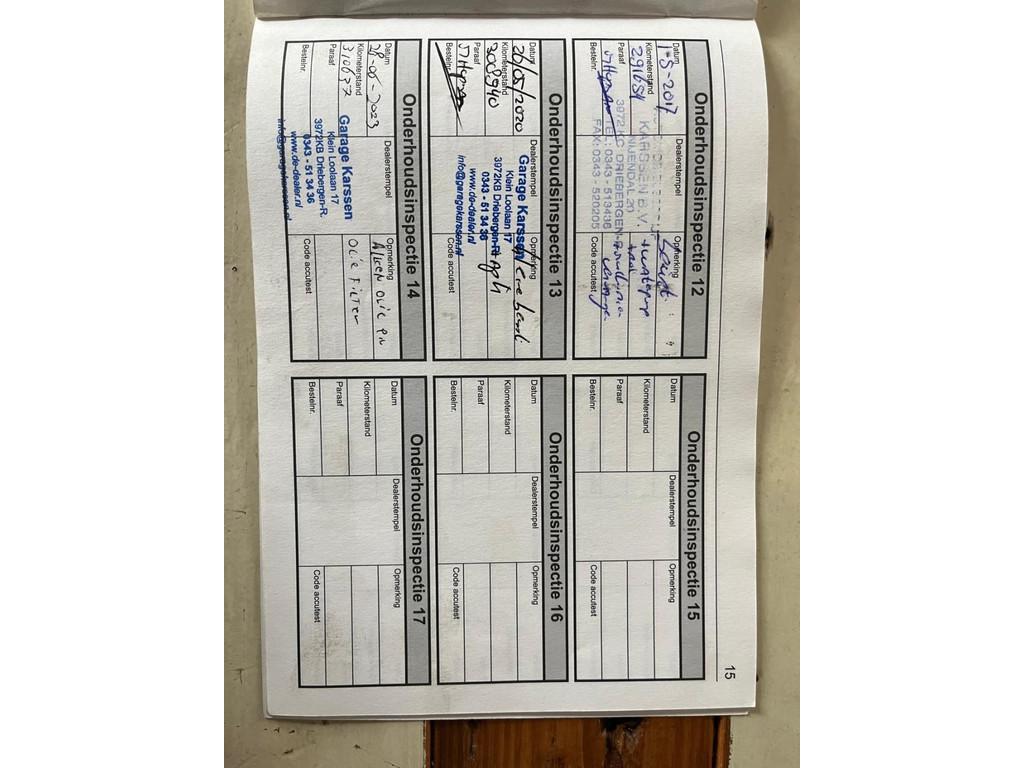 15
Onderhoudsinspectie 12
Datum
Dealerstempel
Opmerking
Kilometerstand
291654
KARSSEN B.V.
+ waterpomp
NIJENDAL 30
Paraaf
3972 KC DRIEBERGEN-R
TEL: 0343 - 513436
Bestelnr.
FAX: 0343 - 520205
Code accutest
Onderhoudsinspectie 13
Datum
26/05/2020
Dealerstempel
Garage Karssen
Opmerking
Kilometerstand
308940
Klein Loolaan 17
3972KB Driebergen-R.
Paraaf
0343 - 51 34 36
www.de-dealer.nl
Bestelnr.
info@garagekarssen.nl
Code accutest
Onderhoudsinspectie 14
Datum
28-05-2023
Dealerstempel
Opmerking
Alleen olie en
Kilometerstand
310677
olie filter
Paraaf
Garage Karssen
Klein Loolaan 17
3972KB Driebergen-R.
Bestelnr.
0343 - 51 34 36
www.de-dealer.nl
info@garagekarssen.nl
Code accutest
Onderhoudsinspectie 15
Datum
Dealerstempel
Opmerking
Kilometerstand
Paraaf
Bestelnr.
Code accutest
Onderhoudsinspectie 16
Datum
Dealerstempel
Opmerking
Kilometerstand
Paraaf
Bestelnr.
Code accutest
Onderhoudsinspectie 17
Datum
Dealerstempel
Opmerking
Kilometerstand
Paraaf
Bestelnr.
Code accutest